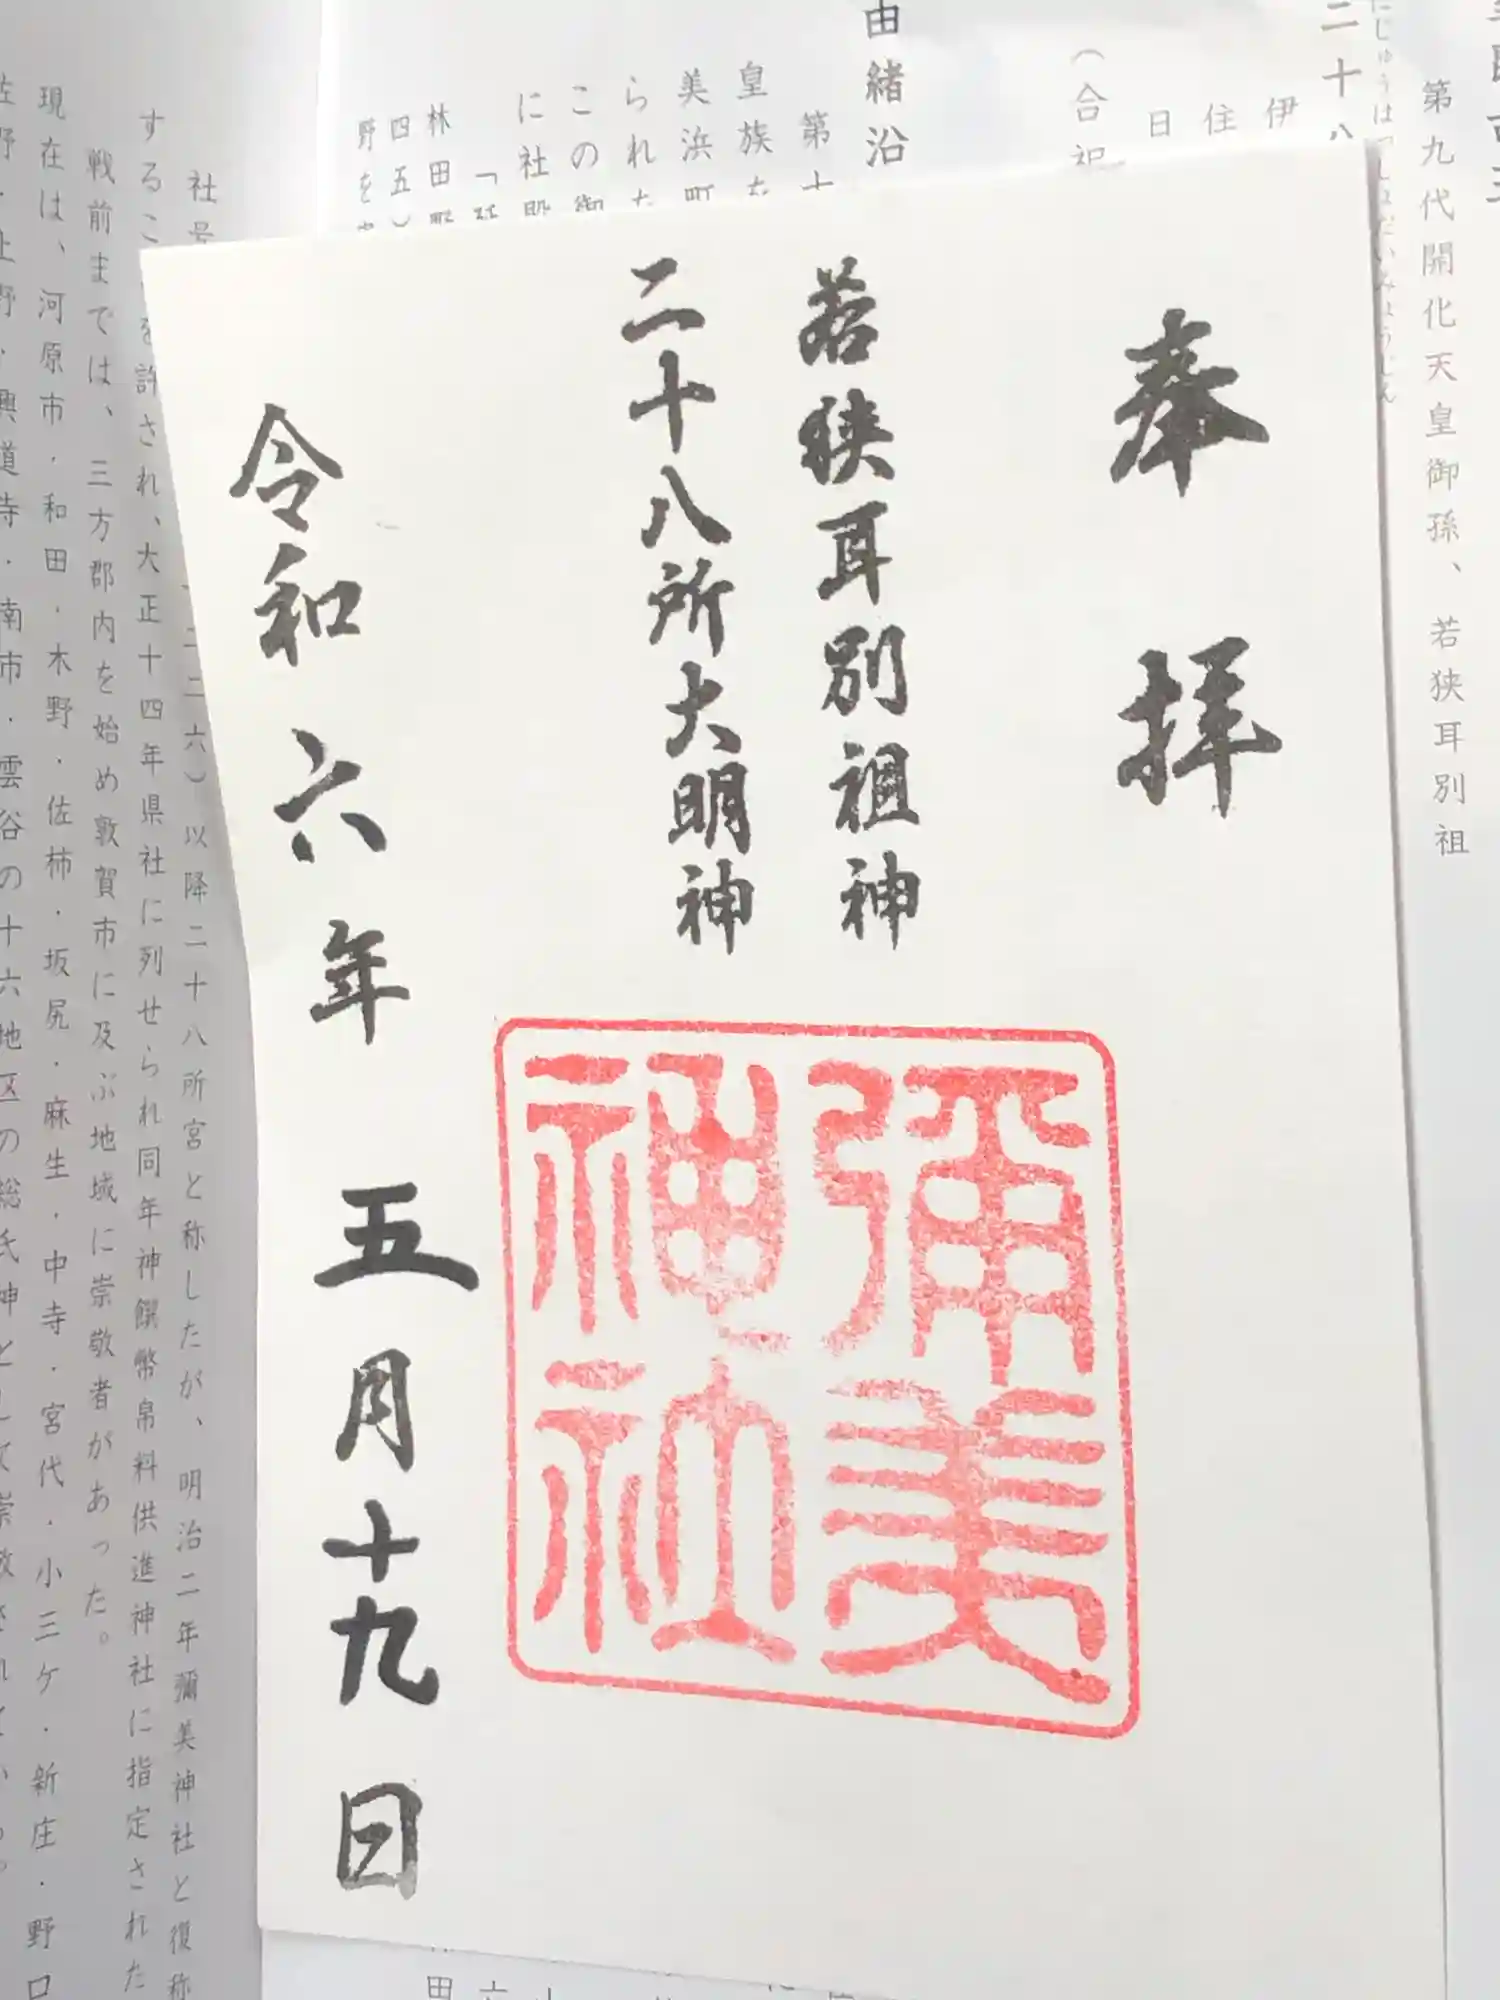 奉拝
若狭耳別祖神
二十八所大明神
彌美
神社
令和六年 五月十九日
第九代開化天皇御孫、若狭耳別祖
二十八
伊
住
日
（合祀
由緒沿
第十
皇族
美浜町
られた
この御
に社殿
林田野
四五）
野を
社号
六）以降二十八所宮と称したが、明治二年彌美神社と復称
するこ
を許され、大正十四年県社に列せられ同年神饌幣帛料供進神社に指定された
戦前までは、三方郡内を始め敦賀市に及ぶ地域に崇敬者があった。
現在は、河原市・和田・木野・佐柿・坂尻・麻生・中寺・宮代・小三ケ・新庄・野口
佐野・上野・興道寺・南市・雲谷の十六地区の総氏神として崇敬されている。